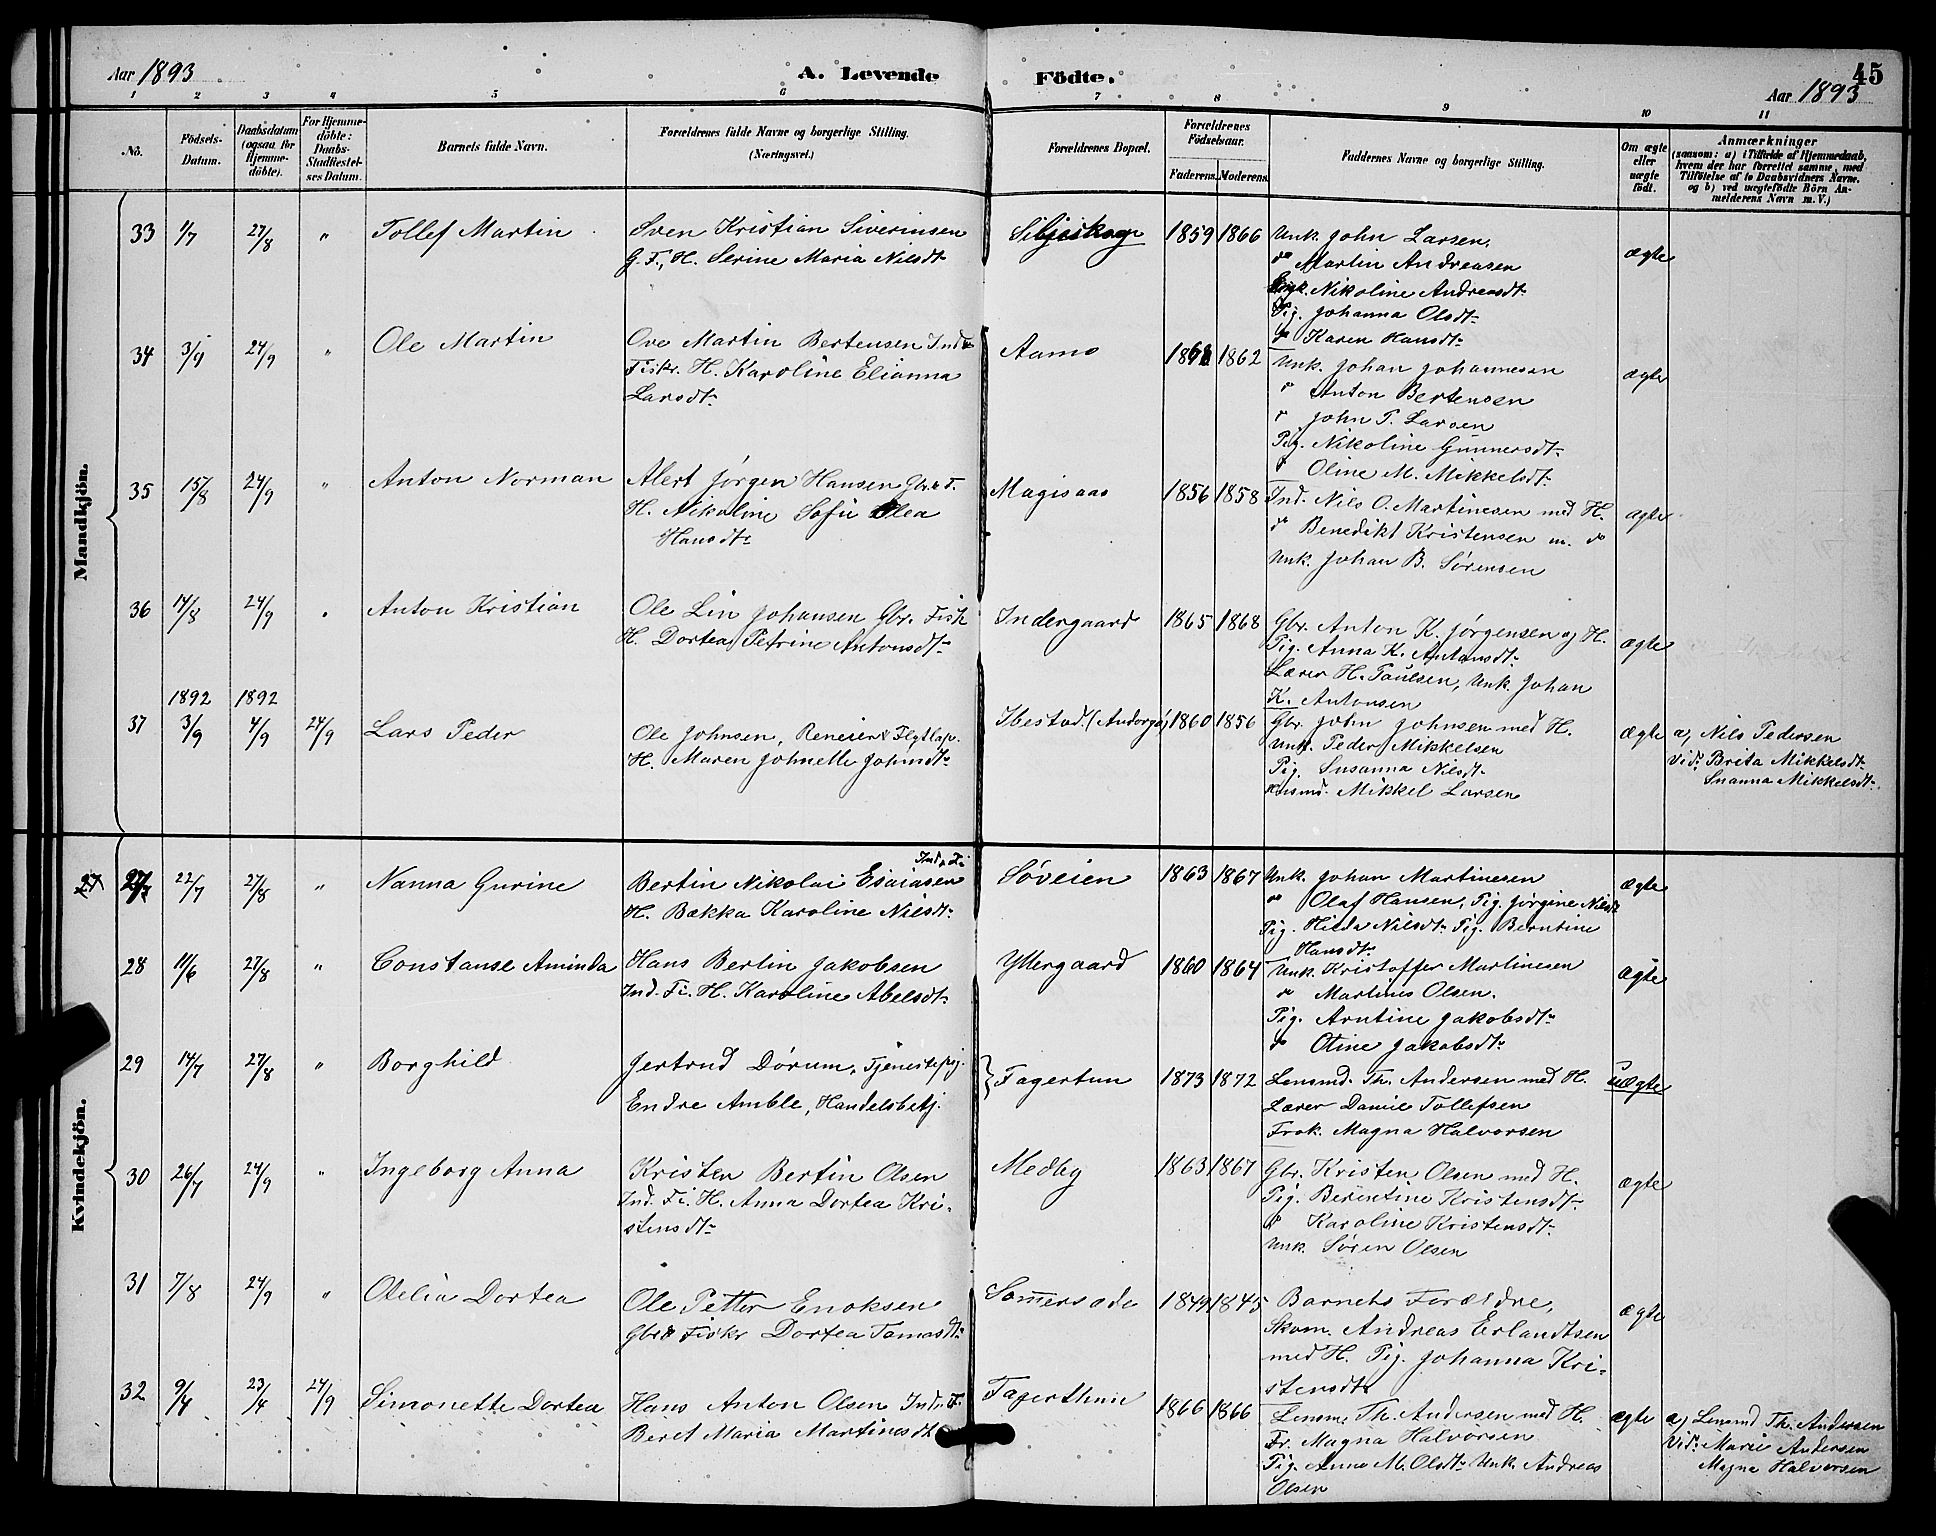 Aar 1893
A. Levende
Födte.
45
Aar 1893
1 2 3 4 5 6 7 8 9 10 11
No.
Födsels-Datum.
Daabsdatum (ogsaa for Hjemme-döbte).
For Hjemme-döbte: Daabs-Stadfæstel-ses Datum.
Barnets fulde Navn.
Forældrenes fulde Navne og borgerlige Stilling.
(Næringsvei.)
Forældrenes Bopæl.
Forældrenes Födselsaar.
Faderens. Moderens.
Faddernes Navne og borgerlige Stilling.
Om ægte eller uægte födt.
Anmærkninger
(saasom: a) i Tilfælde af Hjemmedaab, hvem der har forrettet samme, med Tilföielse af to Daabsvidners Navne. og b) ved uægtefödte Börn Anmelderens Navn m. V.)
Mandkjön.
33 1/7 27/8 " Tollef Martin
Sven Kristian Siverinsen
G. F., H. Serine Maria Nilsdt.
Siljeskogn 1859 1866
Unk. John Larsen.
do Martin Andreasen
Enk. Nikoline Andreasdt.
Pig. Johanna Olsdt.
do Karen Hansdt.
ægte
34 3/9 24/9 " Ole Martin
Ove Martin Bertensen Ind.
Fiskr. H. Karoline Elianna
Larsdt.
Aamo 1868 1862
Unk. Johan Johannesen
" Anton Bertensen
" John P. Larsen
Pig. Nikoline Gunnersdt.
" Oline M. Mikkelsdt.
ægte
35 15/8 24/9 " Anton Norman
Alert Jørgen Hansen Gbr. & F.
H. Nikoline Sofie Olea
Hansdt.
Magisaas 1856 1858
Ind. Nils O. Martinesen med H.
do Benedikt Kristensen m. do
Unk. Johan B. Sørensen
ægte
36 14/8 24/9 " Anton Kristian
Ole Lin Johansen Gbr. Fisk
H. Dortea Petrine Antonsdt.
Indergaard 1865 1868
Gbr. Anton K. Jørgensen og H.
Pig. Anna K. Antonsdt.
Lærer H. Paulsen, Unk. Johan
K. Antonsen
ægte
1892 1892
37 3/9 4/9 24/9 Lars Peder
Ole Johnsen, Reneier & Flytlap.
H. Maren Johnette Johnsdt.
Ibestad. (Andorgø) 1860 1856
Gbr. John Johnsen med H.
Unk. Peder Mikkelsen
Pig. Susanna Nilsdt.
Mikkel Larsen
ægte
a, Nils Pedersen
Vid. Brita Mikkelsdt.
Susanna Mikkelsdt.
Kvindekjön.
27 27 22/7 27/8 " Nanna Gurine
Ind. Fi.
Bertin Nikolai Esaiasen
H. Bækka Karoline Nilsdt.
Søveien 1863 1867
Unk. Johan Martinesen
" Olaf Hansen, Pig. Jørgine Nilsdt
Pig. Hilda Nilsdt. Pig. Berntine
Hansdt.
ægte
28 11/6 27/8 " Constanse Aminda
Hans Bertin Jakobsen
Ind. Fi. H. Karoline Abelsdt.
Yttergaard 1860 1864
Unk. Kristoffer Martinesen
" Martines Olsen.
Pig. Arntine Jakobsdt.
do Otine Jakobsdt.
ægte
29 14/7 27/8 " Borghild
Jertrud Dørum, Tjenestepig.
Endre Amble, Handelsbetj.
Fagertun 1873 1872
Lensmd. Th. Andersen med H.
Lærer Daniel Tollefsen
Frøk. Magna Halvorsen
uægte
30 26/7 24/9 " Ingeborg Anna
Kristen Bertin Olsen
Ind. Fi. H. Anna Dortea Kri-
stensdt.
Medby 1863 1867
Gbr. Kristen Olsen med H.
Pig. Berentine Kristensdt.
" Karoline Kristensdt.
Unk. Søren Olsen
ægte
31 7/8 24/9 " Otelia Dortea
Ole Petter Enoksen
Gbr & Fiskr Dortea Tomasdt.
Sommersæde 1849 1845
Barnets Forældre,
Skom. Andreas Erlandtsen
med H. Pig. Johanna Kri-
stensdt.
ægte
32 9/4 23/4 24/9 Simonette Dortea
Hans Anton Olsen Ind. F.
Beret Maria Martinesdt.
Fagerthun 1866 1866
Lensm. Th. Andersen med H.
Fr. Magna Halvorsen
Pig. Anna M. Olsdt. Unk. Andreas
Olsen
ægte
a, Lensmd Th. Andersen
Vid. Marie Andersen
Magna Halvorsen